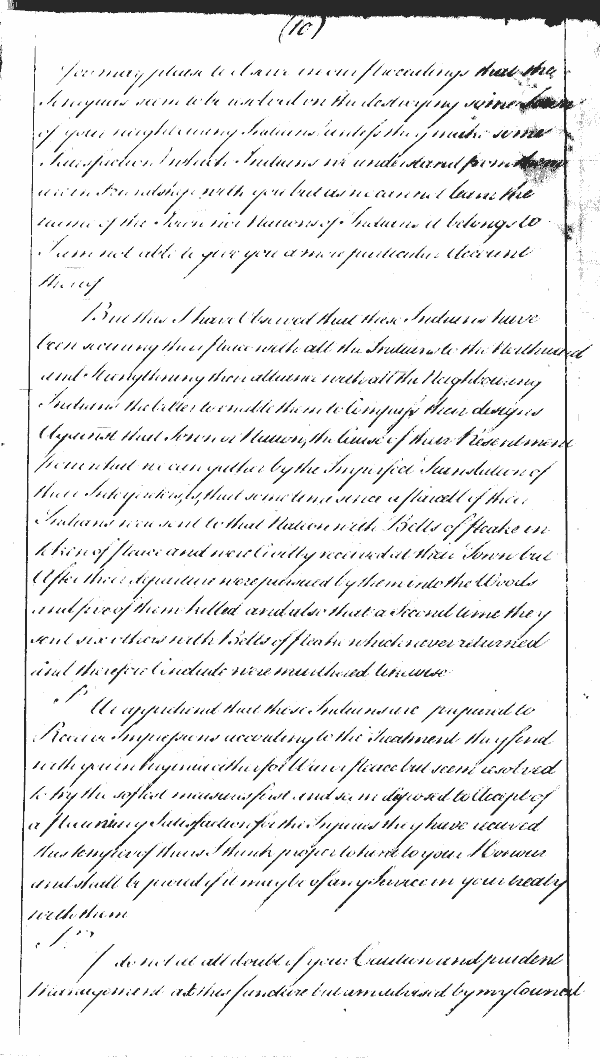 (10)
You may please to observe in our proceedings that the
Senequas seem to be resolved on the destroying some Town
of your neighbouring Indians unless they make some
Satisfaction which Indians we understand from them
are in Friendship with you but as we cannot learn the
name of the Town nor Nations of Indians it belongs to
I am not able to give you a more particular Account
thereof
But this I have Observed that these Indians have
been securing their Peace with all the Indians to the Northward
and Strengthning their alliance with all the Neighbouring
Indians the better to enable them to Compass their designs
Against that Town or Nation, the Cause of their Resentment
from what we can gather by the Imperfect Translation of
their Interpreters, is, that some time since a parcell of their
Indians were sent to that Nation with Belts of peake in
token of peace and were Civilly received at their Town but
After their departure were pursued by them into the Woods
and five of them killed and also that a Second time they
sent six others with Belts of peake which never returned
and therefore Conclude were murthered likewise
Sr. We apprehend that these Indians are prepared to
Receive Impressions according to the Treatment they find
with you in Virginia either for War or Peace but seem resolved
to try the softest measures first and seem disposed to Accept of
a Pecuniary Satisfaction for the Injuries they have received
this temper of theirs I think proper to hint to your Honour
and shall be proud if it may be of any Service in your treaty
with them
Sr.
I do not at all doubt of your Caution and prudent
management at this juncture but am advised by my Council